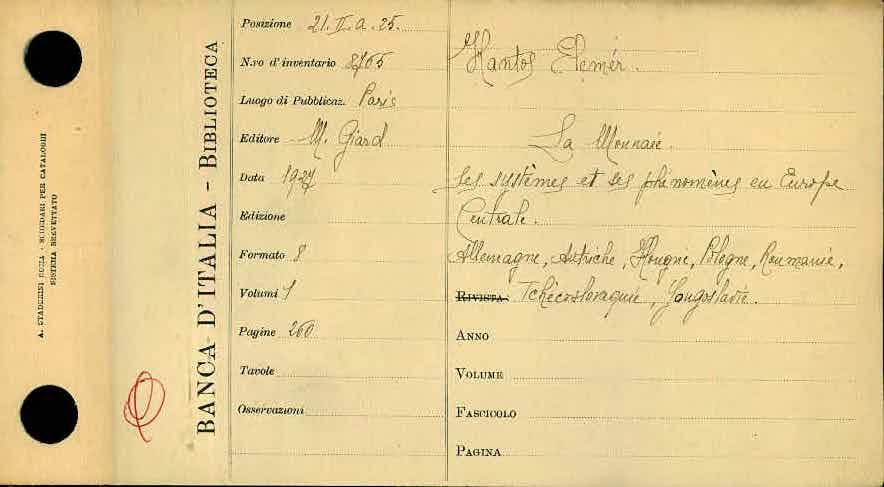 A. STADERINI ROMA - SCHEDARI PER CATALOGHI
SISTEMA BREVETTATO
BANCA D'ITALIA - BIBLIOTECA
Posizione 21. II. a. 25.
N.ro d'inventario 8765
Luogo di Pubblicaz. Paris
Editore M. Giard
Data 1927
Edizione
Formato 8
Volumi 1
Pagine 260
Tavole
Osservazioni
Hantos Elemér.
La Monnaie.
Ses systèmes et ses phénomènes en Europe
Centrale.
Allemagne, Autriche, Hongrie, Pologne, Roumanie,
RIVISTA Tchécoslovaquie, Yougoslavie.
ANNO
VOLUME
FASCICOLO
PAGINA